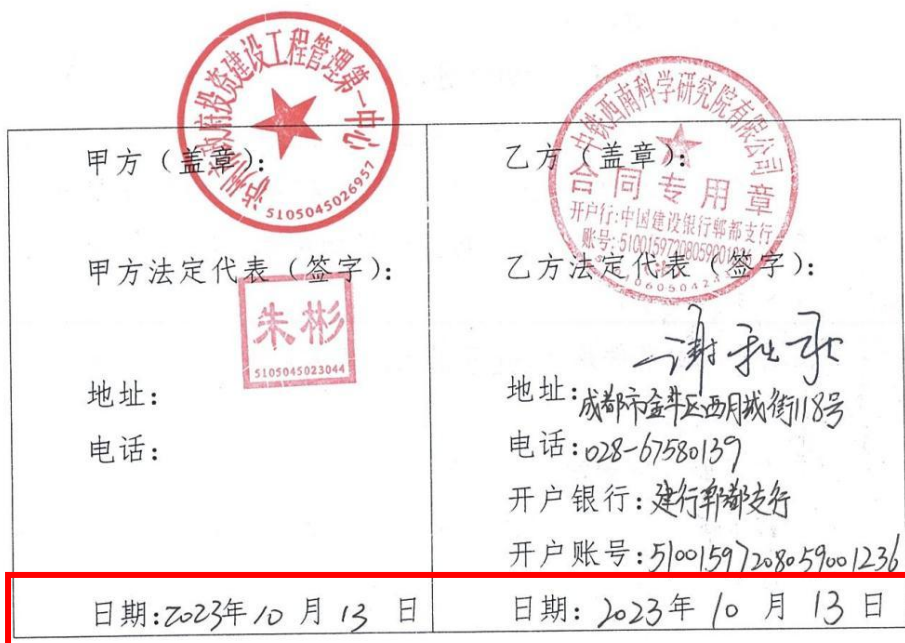 泸州市政府投资建设工程管理第一中心
5105045026957
甲方（盖章）：
甲方法定代表（签字）：
朱彬
5105045023044
地址：
电话：
日期：2023年10月13日
中铁西南科学研究院有限公司
合同专用章
开户行：中国建设银行郫都支行
账号：51001597208059001236
乙方（盖章）：
乙方法定代表（签字）：
地址：成都市金牛区西月城街118号
电话：028-67580139
开户银行：建行郫都支行
开户账号：51001597208059001236
日期：2023年10月13日